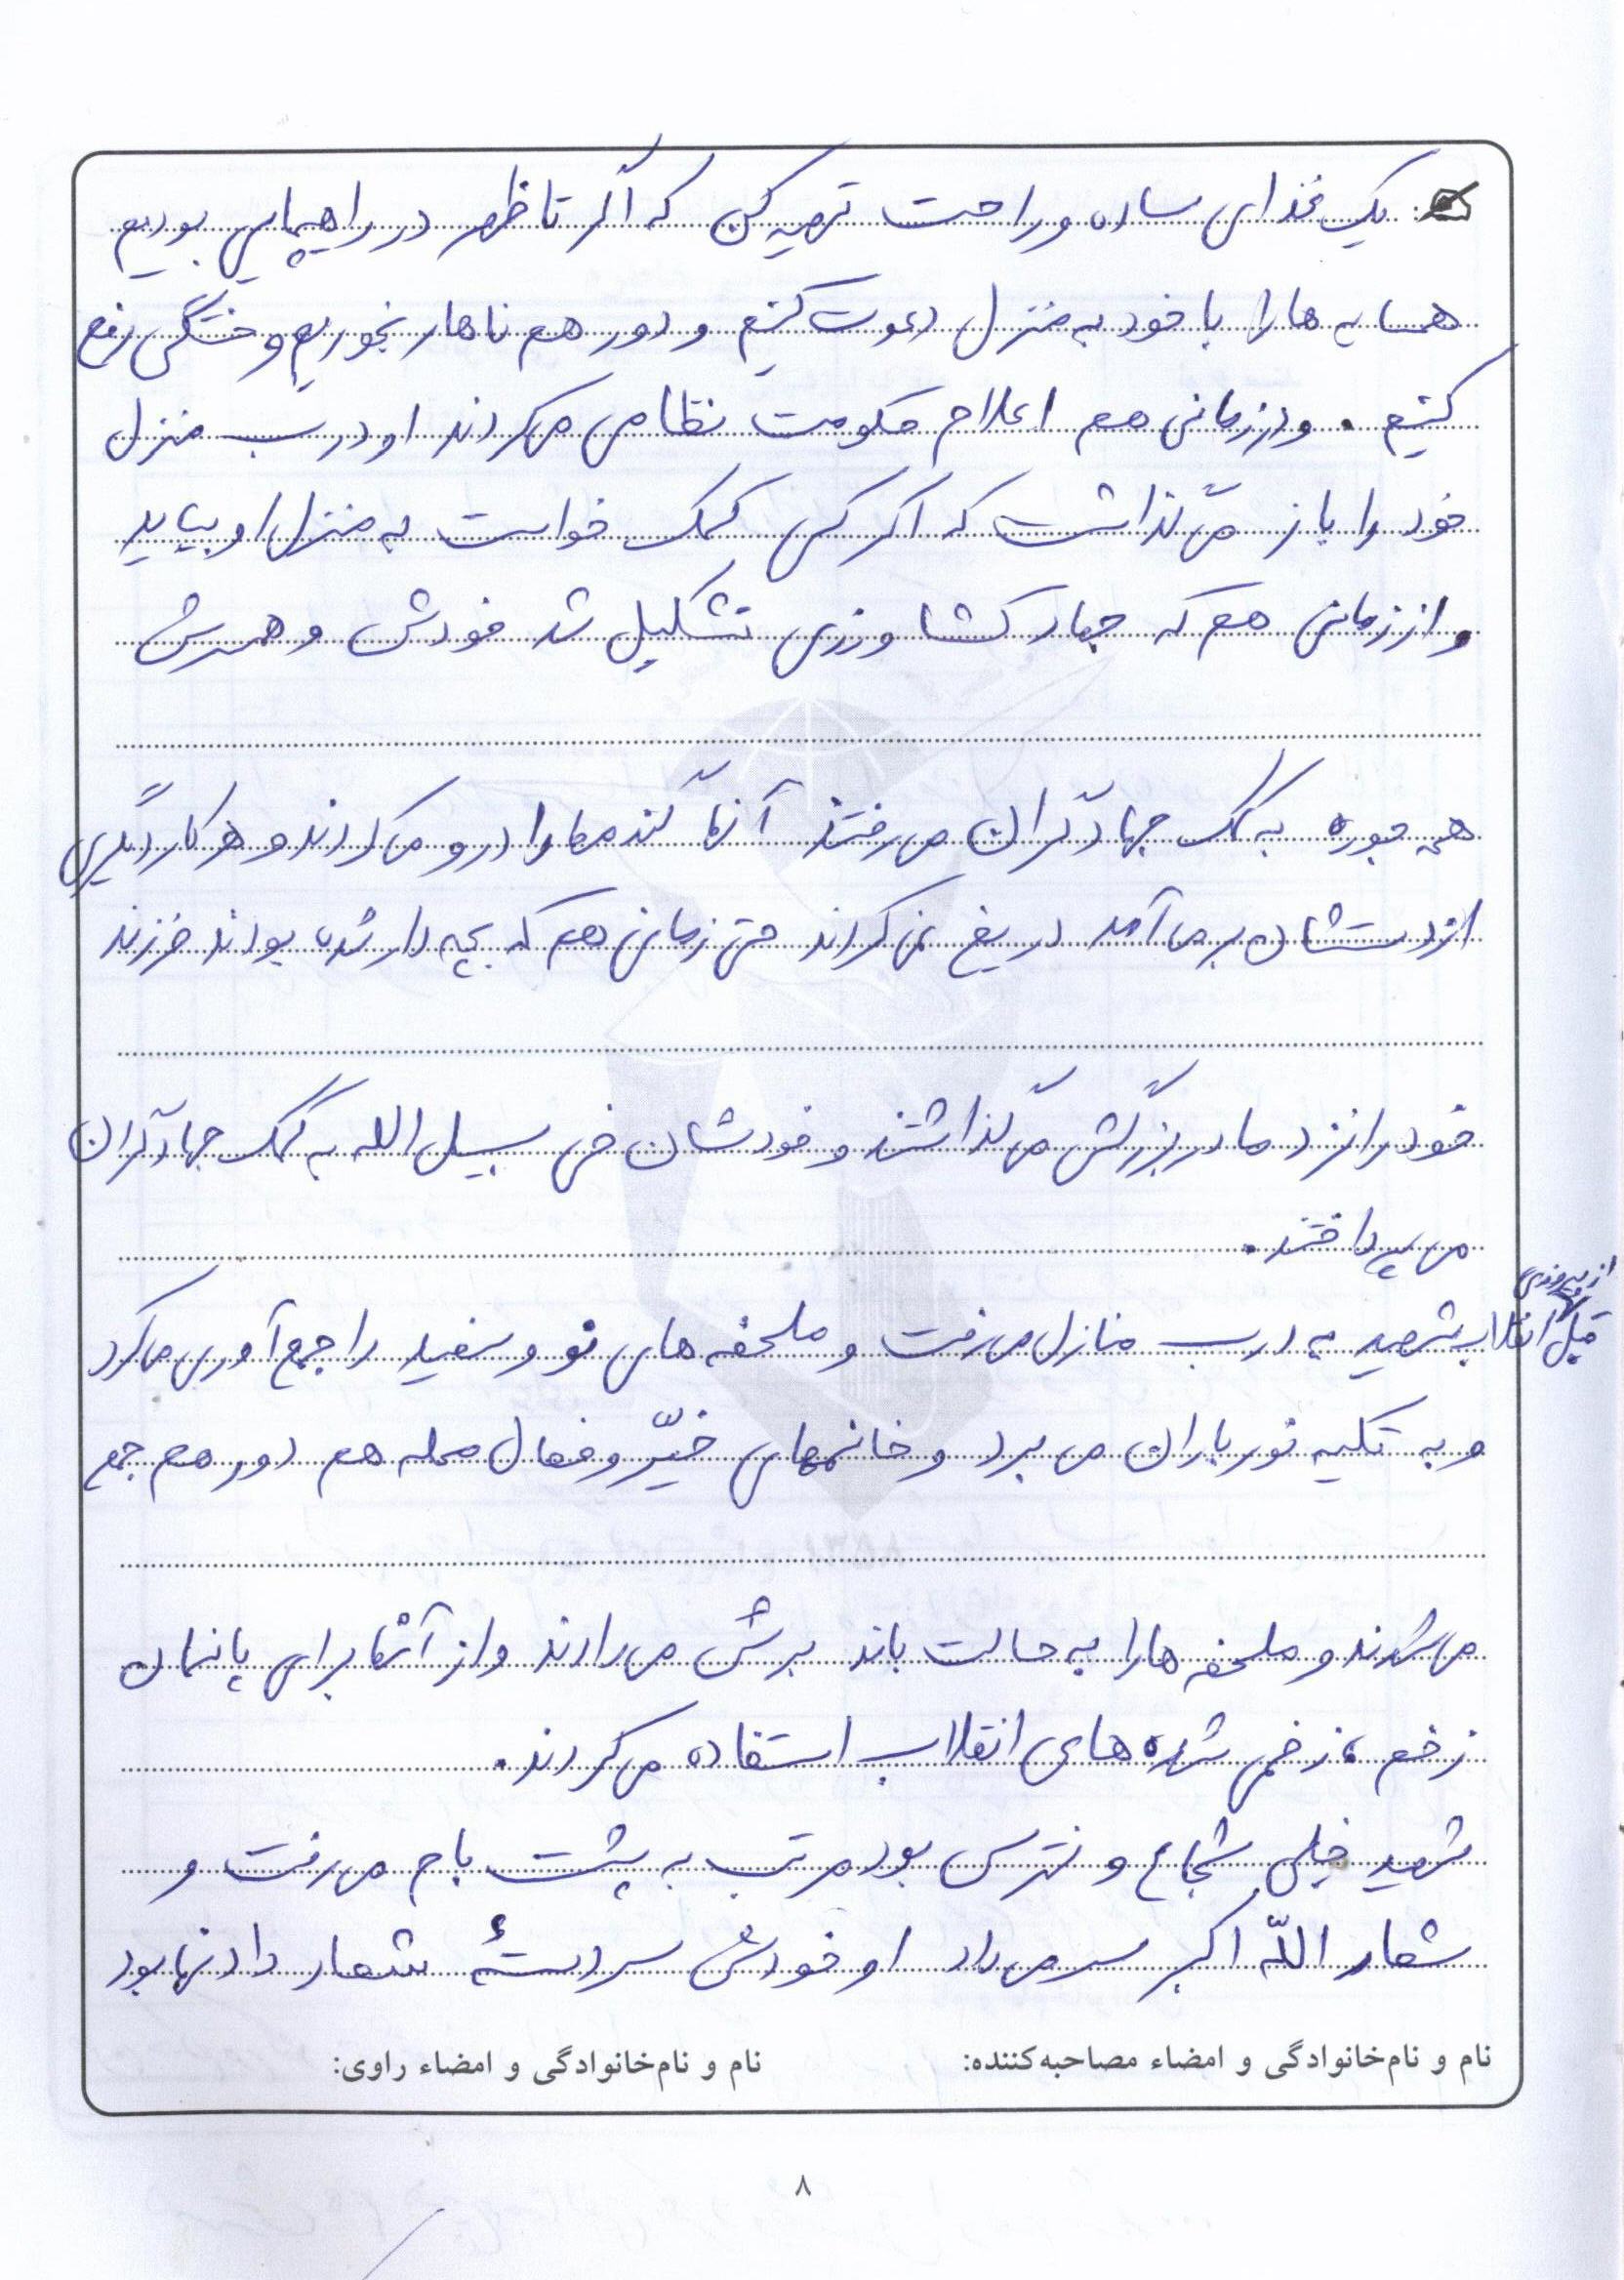 یک غذای ساده و راحت تهیه کن که اگر تا ظهر در راهپیمایی بودیم
همسایه ها را با خود به منزل دعوت کنیم و دور هم ناهار بخوریم و خستگی رفع
کنیم . و در زمانی هم اعلام حکومت نظامی می کردند او درب منزل
خود را باز می گذاشت که اگر کسی کمک خواست به منزل او بیاید
و از زمانی هم که جهاد کشاورزی تشکیل شد خودش و همسرش
همه جوره به کمک جهادگران می رفتند آنها گندمها را درو می کردند و هر کار دیگری
از دستشان بر می آمد دریغ نمی کردند حتی زمانی هم که بچه دار شده بودند فرزند
خود را نزد مادربزرگش می گذاشتند و خودشان فی سبیل الله به کمک جهادگران
می پرداختند .
قبل از پیروزی انقلاب شهید به درب منازل می رفت و ملحفه های نو و سفید را جمع آوری می کرد
و به تکیه نورباران می برد و خانمهای خیّر و فعال محله هم دور هم جمع
می شدند و ملحفه ها را به حالت باند برش می دادند و از آنها برای پانسمان
زخم ، زخمی شده های انقلاب استفاده می کردند .
شهید خیلی شجاع و نترس بود مرتب به پشت بام می رفت و
شعار اللّه اکبر سر می داد او خودش سردستهٔ شعار دادنها بود
نام و نام‌خانوادگی و امضاء مصاحبه‌کننده: نام و نام‌خانوادگی و امضاء راوی:
۸